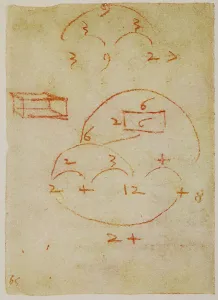 3
3 3
3 9 27
6
2
6
2 3 4
2 4 12 48
24